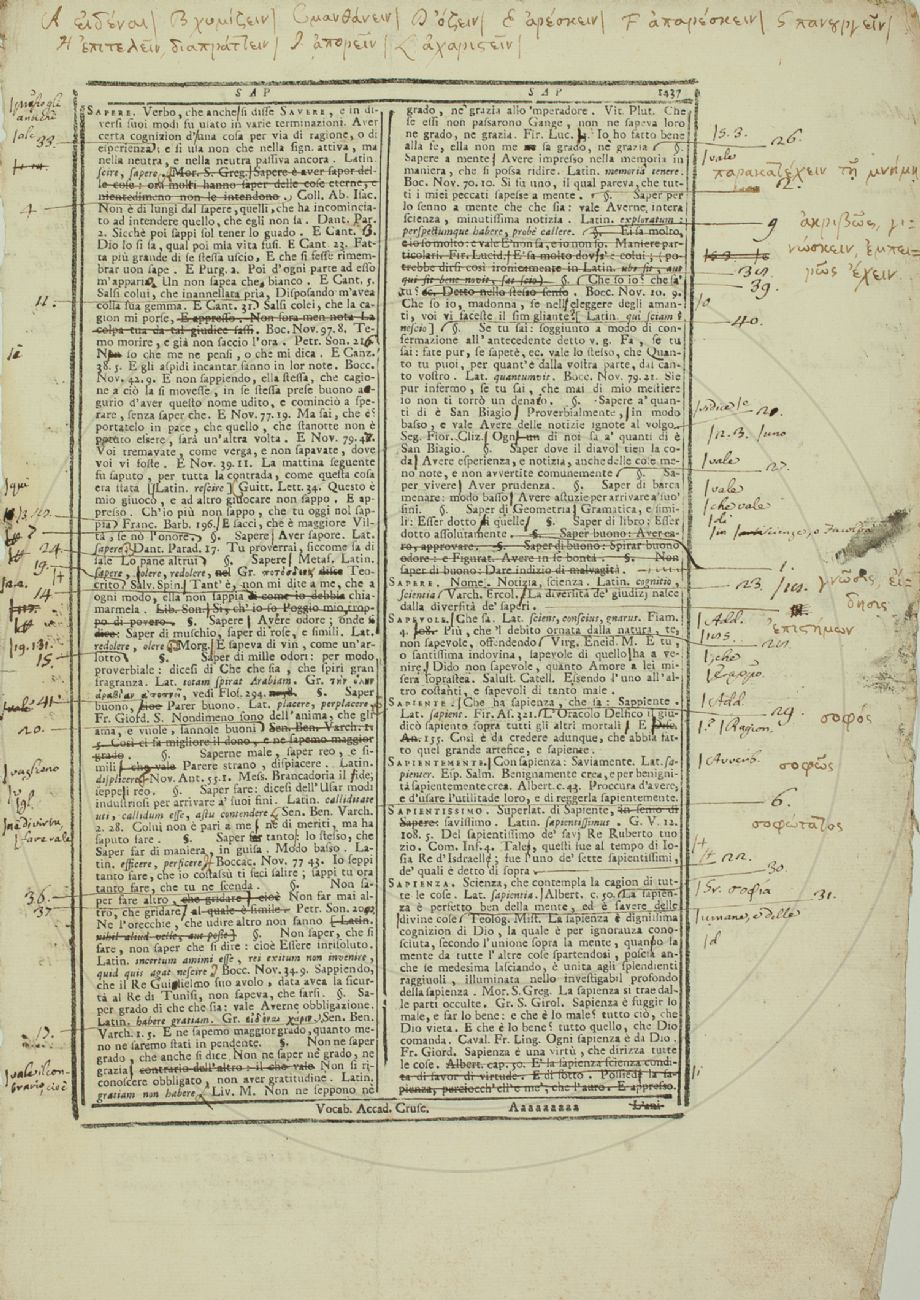 A εἰδέναι/ B χυμίζειν/ C μανθάνειν/ D ὄζειν/ E ἀρέσκειν/ F ἀπαρέσκειν/
H ἐπιτελεῖν, διαπράττειν/ I ἀπορεῖν/ L ἀχαριςεῖν/
SAP
SAPERE. Verbo, che anche si disse SAVERE, e in di-
versi suoi modi fu usato in varie terminazioni. Aver
certa cognizion d'una cosa per via di ragione, o di
esperienza; e si usa non che nella sign. attiva, ma
nella neutra, e nella neutra passiva ancora. Latin.
scire, sapere. Mor. S. Greg. Sapere è aver sapor del-
le cose: ora molti hanno saper delle cose eterne, e
nientedimeno non le intendono. Coll. Ab. Isac.
Non è di lungi dal sapere, quelli, che ha incomincia-
to ad intendere quello, che egli non sa. Dant. Par.
2. Sicchè poi sappi sol tener lo guado. E Cant. 3.
Dio lo si sa, qual poi mia vita fusi. E Cant. 23. Fat-
ta più grande di se stessa uscìo, E che si fesse rimem-
brar non sape. E Purg. 2. Poi d'ogni parte ad esso
m'appario, Un non sapea che bianco. E Cant. 5.
Salsi colui, che inannellata pria, Disposando m'avea
colla sua gemma. E Cant. 31. Salsi colei, che la ca-
gion mi porse. E appresso. Non fora men nota La
colpa tua da tal giudice sassi. Boc. Nov. 97. 8. Te-
mo morire, e già non saccio l'ora. Petr. Son. 216.
Non so che me ne pensi, o che mi dica. E Canz.
38. 5. E gli aspidi incantar sanno in lor note. Bocc.
Nov. 42. 9. E non sappiendo, ella stessa, che cagio-
ne a ciò la si movesse, in se stessa prese buono au-
gurio d'aver questo nome udito, e cominciò a spe-
rare, senza saper che. E Nov. 77. 19. Ma sai, che è?
portatelo in pace, che quello, che stanotte non è
potuto essere, sarà un'altra volta. E Nov. 79. 42.
Voi tremavate, come verga, e non sapavate, dove
voi vi foste. E Nov. 39. 11. La mattina seguente
fu saputo, per tutta la contrada, come questa cosa
era stata. Latin. rescire. Guitt. Lett. 34. Questo è
mio giuoco, e ad altro giuocare non sappo. E ap-
presso. Ch'io più non sappo, che tu oggi nol sap-
pia. Franc. Barb. 196. E sacci, che è maggiore Vil-
tà, se nò l'onore. §. Sapere, Aver sapore. Lat.
sapere. Dant. Parad. 17. Tu proverai, siccome sa di
sale Lo pane altrui. §. Sapere, Metaf. Latin.
sapere, olere, redolere, Teo-
crito. Salv. Spin. Tant'è, non mi dite a me, che a
ogni modo, ella non sappia di come io debbia chia-
marmela. Lib. Son. Si, ch'io so Poggio mio, trop-
po di povero. §. Sapere, Avere odore; onde si
dice: Saper di muschio, saper di rose, e simili. Lat.
redolere, olere. Morg. E sapeva di vin, come un'ar-
lotto. §. Saper di mille odori: per modo
proverbiale: dicesi di Che che sia, che spiri gran
fragranza. Lat. totam spirat Arabiam.
vedi Flos. 294. §. Saper
buono, Parer buono. Lat. placere, perplacere,
Fr. Giord. S. Nondimeno sono dell'anima, che gli
ama, e vuole, sannole buoni. Sen. Ben. Varch. 11
5. Così ci sa migliore il dono, e ne sapemo maggior
grado. §. Saperne male, saper reo, e si-
mili, che vale Parere strano, dispiacere. Latin.
displicere. Nov. Ant. 55. 1. Mess. Brancadoria il fide;
seppeli reo. §. Saper fare: dicesi dell'Usar modi
industriosi per arrivare a' suoi fini. Latin. calliditate
uti, callidum esse, astu contendere. Sen. Ben. Varch.
2. 28. Colui non è pari a me, nè di meriti, ma ha
saputo fare. §. Saper far tanto: lo stesso, che
Saper far di maniera, in guisa. Modo basso. La-
tin. efficere, perficere. Boccac. Nov. 77 43. Io seppi
tanto fare, che io costassù ti feci salire; sappi tu ora
tanto fare, che tu ne scenda. §. Non sa-
per fare altro, che gridare, cioè Non far mai al-
tro, che gridare, al quale è simile. Petr. Son. 202.
Ne l'orecchie, che udire altro non sanno. Latin.
nihil aliud velle, aut posse. §. Non saper, che si
fare, non saper che si dire: cioè Essere inrisoluto.
Latin. incertum animi esse, rei exitum non invenire,
quid quis agat nescire. Bocc. Nov. 34. 9. Sappiendo,
che il Re Guiglielmo suo avolo, data avea la sicur-
tà al Re di Tunisi, non sapeva, che farsi. §. Sa-
per grado di che che sia: vale Averne obbligazione.
Latin. habere gratiam. Gr. εἰδέναι χάριν. Sen. Ben.
Varch. 1. 5. E ne sapemo maggior grado, quanto me-
no ne saremo stati in pendente. §. Non ne saper
grado, che anche si dice Non ne saper nè grado, ne
grazia, contrario dell'altro: il che vale Non si ri-
conoscere obbligato, non aver gratitudine. Latin.
gratiam non habere. Liv. M. Non ne seppono nè
SAP 1437
grado, nè grazia allo 'mperadore. Vit. Plut. Che
se essi non passarono Gange, non ne sapeva loro
ne grado, ne grazia. Fir. Luc. Io ho fatto bene
alla fe, ella non me ne sa grado, nè grazia. §.
Sapere a mente, Avere impresso nella memoria in
maniera, che si possa ridire. Latin. memoria tenere.
Boc. Nov. 70. 10. Sì fu uno, il qual pareva, che tut-
ti i miei peccati sapesse a mente. §. Saper per
lo senno a mente che che sia: vale Averne intera
scienza, minutissima notizia. Latin. exploratum:
perspectumque habere, probè callere. §. Ei sa molto,
e io so molto: e vale E' non sa, e io non so. Maniere par-
ticolari. Fir. Lucid. E' sa molto dove s'è colui; (po-
trebbe dirsi così ironicamente in Latin.
§. Che so io? che sa'
tu? ec. Detto nello stesso senso. Bocc. Nov. 10. 9.
Che so io, madonna, se nell'eleggere degli aman-
ti, voi vi faceste il simigliante? Latin. qui sciam?
nescio. §. Se tu sai: soggiunto a modo di con-
fermazione all'antecedente detto v. g. Fa, se tu
sai: fate pur, se sapete, ec. vale lo stesso, che Quan-
to tu puoi, per quant'è dalla vostra parte, dal can-
to vostro. Lat. quantumvis. Bocc. Nov. 79. 21. Sie
pur infermo, se tu sai, che mai di mio mestiere
io non ti torrò un denaro. §. Sapere a' quan-
ti dì è San Biagio, Proverbialmente, in modo
basso, e vale Avere delle notizie ignote al volgo.
Seg. Fior. Cliz. Ogn'un di noi sa a' quanti dì è
San Biagio. §. Saper dove il diavol tien la co-
da, Avere esperienza, e notizia, anche delle cose me-
no note, e non avvertite comunemente. §. Sa-
per vivere, Aver prudenza. §. Saper di barca
menare: modo basso, Avere astuzie per arrivare a' suo'
fini. §. Saper di Geometria, Gramatica, e simi-
li: Esser dotto di quelle. §. Saper di libro: Esser
dotto assolutamente. §. Saper buono: Aver ca-
ro, approvare. §. Saper di buono: Spirar buono
odore: e Figurat. Avere in se bontà. §. Non
saper di buono: Dare indizio di malvagità.
SAPERE. Nome. Notizia, scienza. Latin. cognitio,
scientia. Varch. Ercol. La diversità de' giudizj nasce
dalla diversità de' saperi.
SAPEVOLE. Che sa. Lat. sciens, conscius, gnarus. Fiam.
4. 108. Più, che 'l debito ornata dalla natura, te,
non sapevole, offendendo. Virg. Eneid. M. E tu,
o santissima indovina, sapevole di quello, ha a ve-
nire, Dido non sapevole, quanto Amore a lei mi-
sera soprastea. Salust. Catell. Essendo l'uno all'al-
tro costanti, e sapevoli di tanto male.
SAPIENTE. Che ha sapienza, che sa: Sappiente.
Lat. sapiens. Fir. As. 321. L'Oracolo Delfico il giu-
dicò sapiente sopra tutti gli altri mortali.
An. 155. Così è da credere adunque, che abbia fat-
to quel grande artefice, e sapiente.
SAPIENTEMENTE. Con sapienza: Saviamente. Lat. sa-
pienter. Esp. Salm. Benignamente crea, e per benigni-
tà sapientemente crea. Albert. c. 43. Proccura d'avere,
e d'usare l'utilitade loro, e di reggerla sapientemente.
SAPIENTISSIMO. Superlat. di Sapiente, in senso di
Sapere: savissimo. Latin. sapientissimus. G. V. 12.
108. 5. Del sapientissimo de' savj Re Ruberto tuo
zio. Com. Inf. 4. Tale, questi fue al tempo di Io-
sia Re d'Isdraelle; fue l'uno de' sette sapientissimi,
de' quali è detto di sopra.
SAPIENZA. Scienza, che contempla la cagion di tut-
te le cose. Lat. sapientia. Albert. c. 30. La sapien-
za è perfetto ben della mente, ed è savere delle
divine cose. Teolog. Mist. La sapienza è dignissima
cognizion di Dio, la quale è per ignoranza cono-
sciuta, secondo l'unione sopra la mente, quando la
mente da tutte l'altre cose spartendosi, poscia an-
che se medesima lasciando, è unita agli splendienti
raggiuoli, illuminata nello investigabil profondo
della sapienza. Mor. S. Greg. La sapienza si trae dal-
le parti occulte. Gr. S. Girol. Sapienza è fuggir lo
male, e far lo bene: e che è lo male? tutto ciò, che
Dio vieta. E che è lo bene? tutto quello, che Dio
comanda. Caval. Fr. Ling. Ogni sapienza è da Dio.
Fr. Giord. Sapienza è una virtù, che dirizza tutte
le cose. Albert. cap. 30. E' la sapienza scienza condi-
ta di savor di virtude. E di sotto. Possiedi la sa-
pienza, perciocch'ell'è me', che l'auro. E appresso.
Vocab. Accad. Crusc. Aaaaaaaaa L'ani
33.
4
11.
24.
19.
14
15.
41.
20.
36.
37
13.
26.
/vale
παρακατέχειν τῇ μνήμῃ
9 ἀκριβῶς, γι-
νώσκειν, ἐμπει-
ρῶς ἔχειν
39.
40.
/vale
27.
/vale
/che vale
23. γνῶσις, εἴ-
δησις
ἐπιστήμων
/Add.
/che
/Add
29. σοφός
/Avverb.
σοφῶς
6.
σοφώτατος
22.
30
σοφία
31.
/umane, e delle